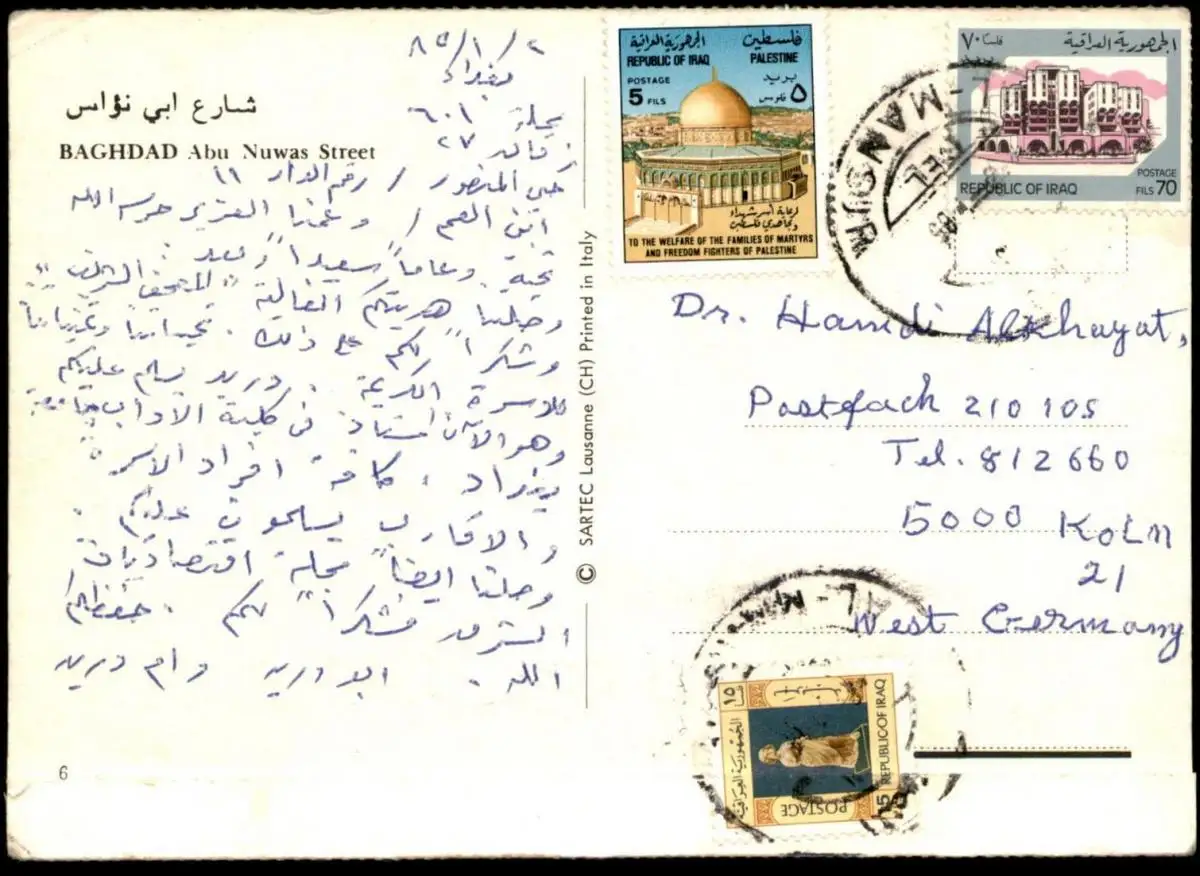 شارع ابي نؤاس
BAGHDAD Abu Nuwas Street
٢/١/٨٥
بغداد
محلة ٦٠١
زقاق ٢٧
حي المنصور / رقم الدار ١١
ابن العم / وعمنا العزيز حرسه الله
تحية وعاماً سعيداً وبعد :
وصلتنا هديتكم الغالية " المتحف الشرقي "
وشكراً لكم على ذلك . تحياتنا وتمنياتنا
للاسرة الكريمة . دريد يسلم عليكم
وهو الآن أستاذ في كلية الاداب جامعة
بغداد ، كافة افراد الاسرة
والاقارب يسلمون عليكم .
وصلتنا ايضاً مجلة اقتصاديات
الشرق فشكراً لكم . حفظكم
الله . ابو دريد وام دريد
6
© SARTEC Lausanne (CH) Printed in Italy
الجمهورية العراقية فلسطين
REPUBLIC OF IRAQ PALESTINE
POSTAGE بريد
5 FILS ٥ فلوس
لرعاية أسر شهداء
ومجاهدي فلسطين
TO THE WELFARE OF THE FAMILIES OF MARTYRS
AND FREEDOM FIGHTERS OF PALESTINE
٧٠ فلسا الجمهورية العراقية
بريد
POSTAGE
REPUBLIC OF IRAQ FILS 70
AL-MANSOUR
Dr. Hamdi Alkhayat,
Postfach 210105
Tel. 812660
5000 KoLn
21
West Germany
AL-MAN
١٥ فلسا
بريد
الجمهورية العراقية
REPUBLIC OF IRAQ
POSTAGE
15